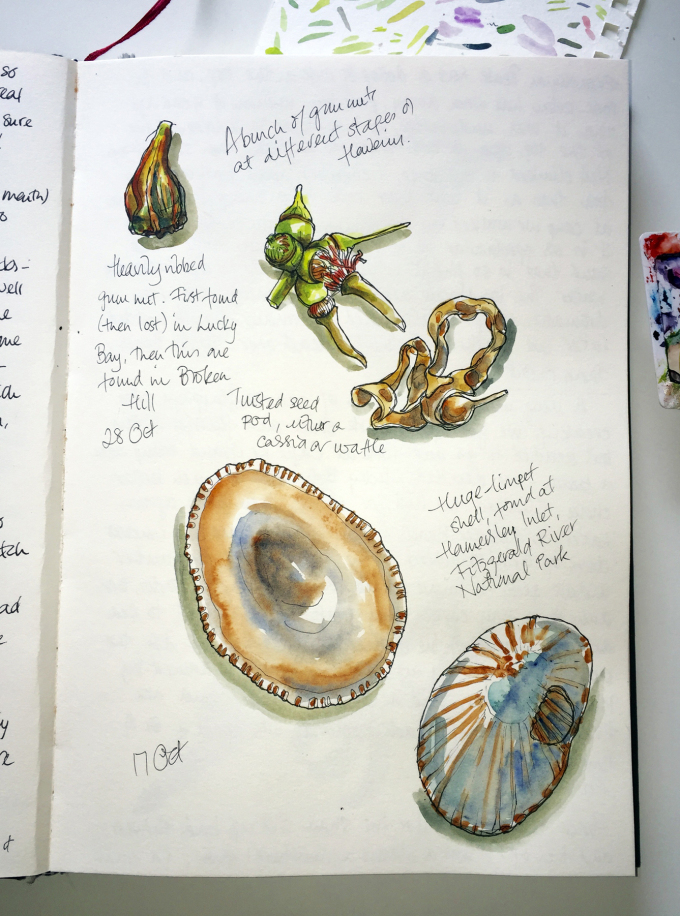 so
eal
sure
mouth)
well
me
A bunch of gum nuts
at different stages of
flowering.
Heavily ribbed
gum nut. First found
(then lost) in Lucky
Bay, then this one
found in Broken
Hill
28 Oct
Twisted seed
pod, either a
cassia or wattle
Huge limpet
shell, found at
Hamersley Inlet,
Fitzgerald River
National Park
17 Oct